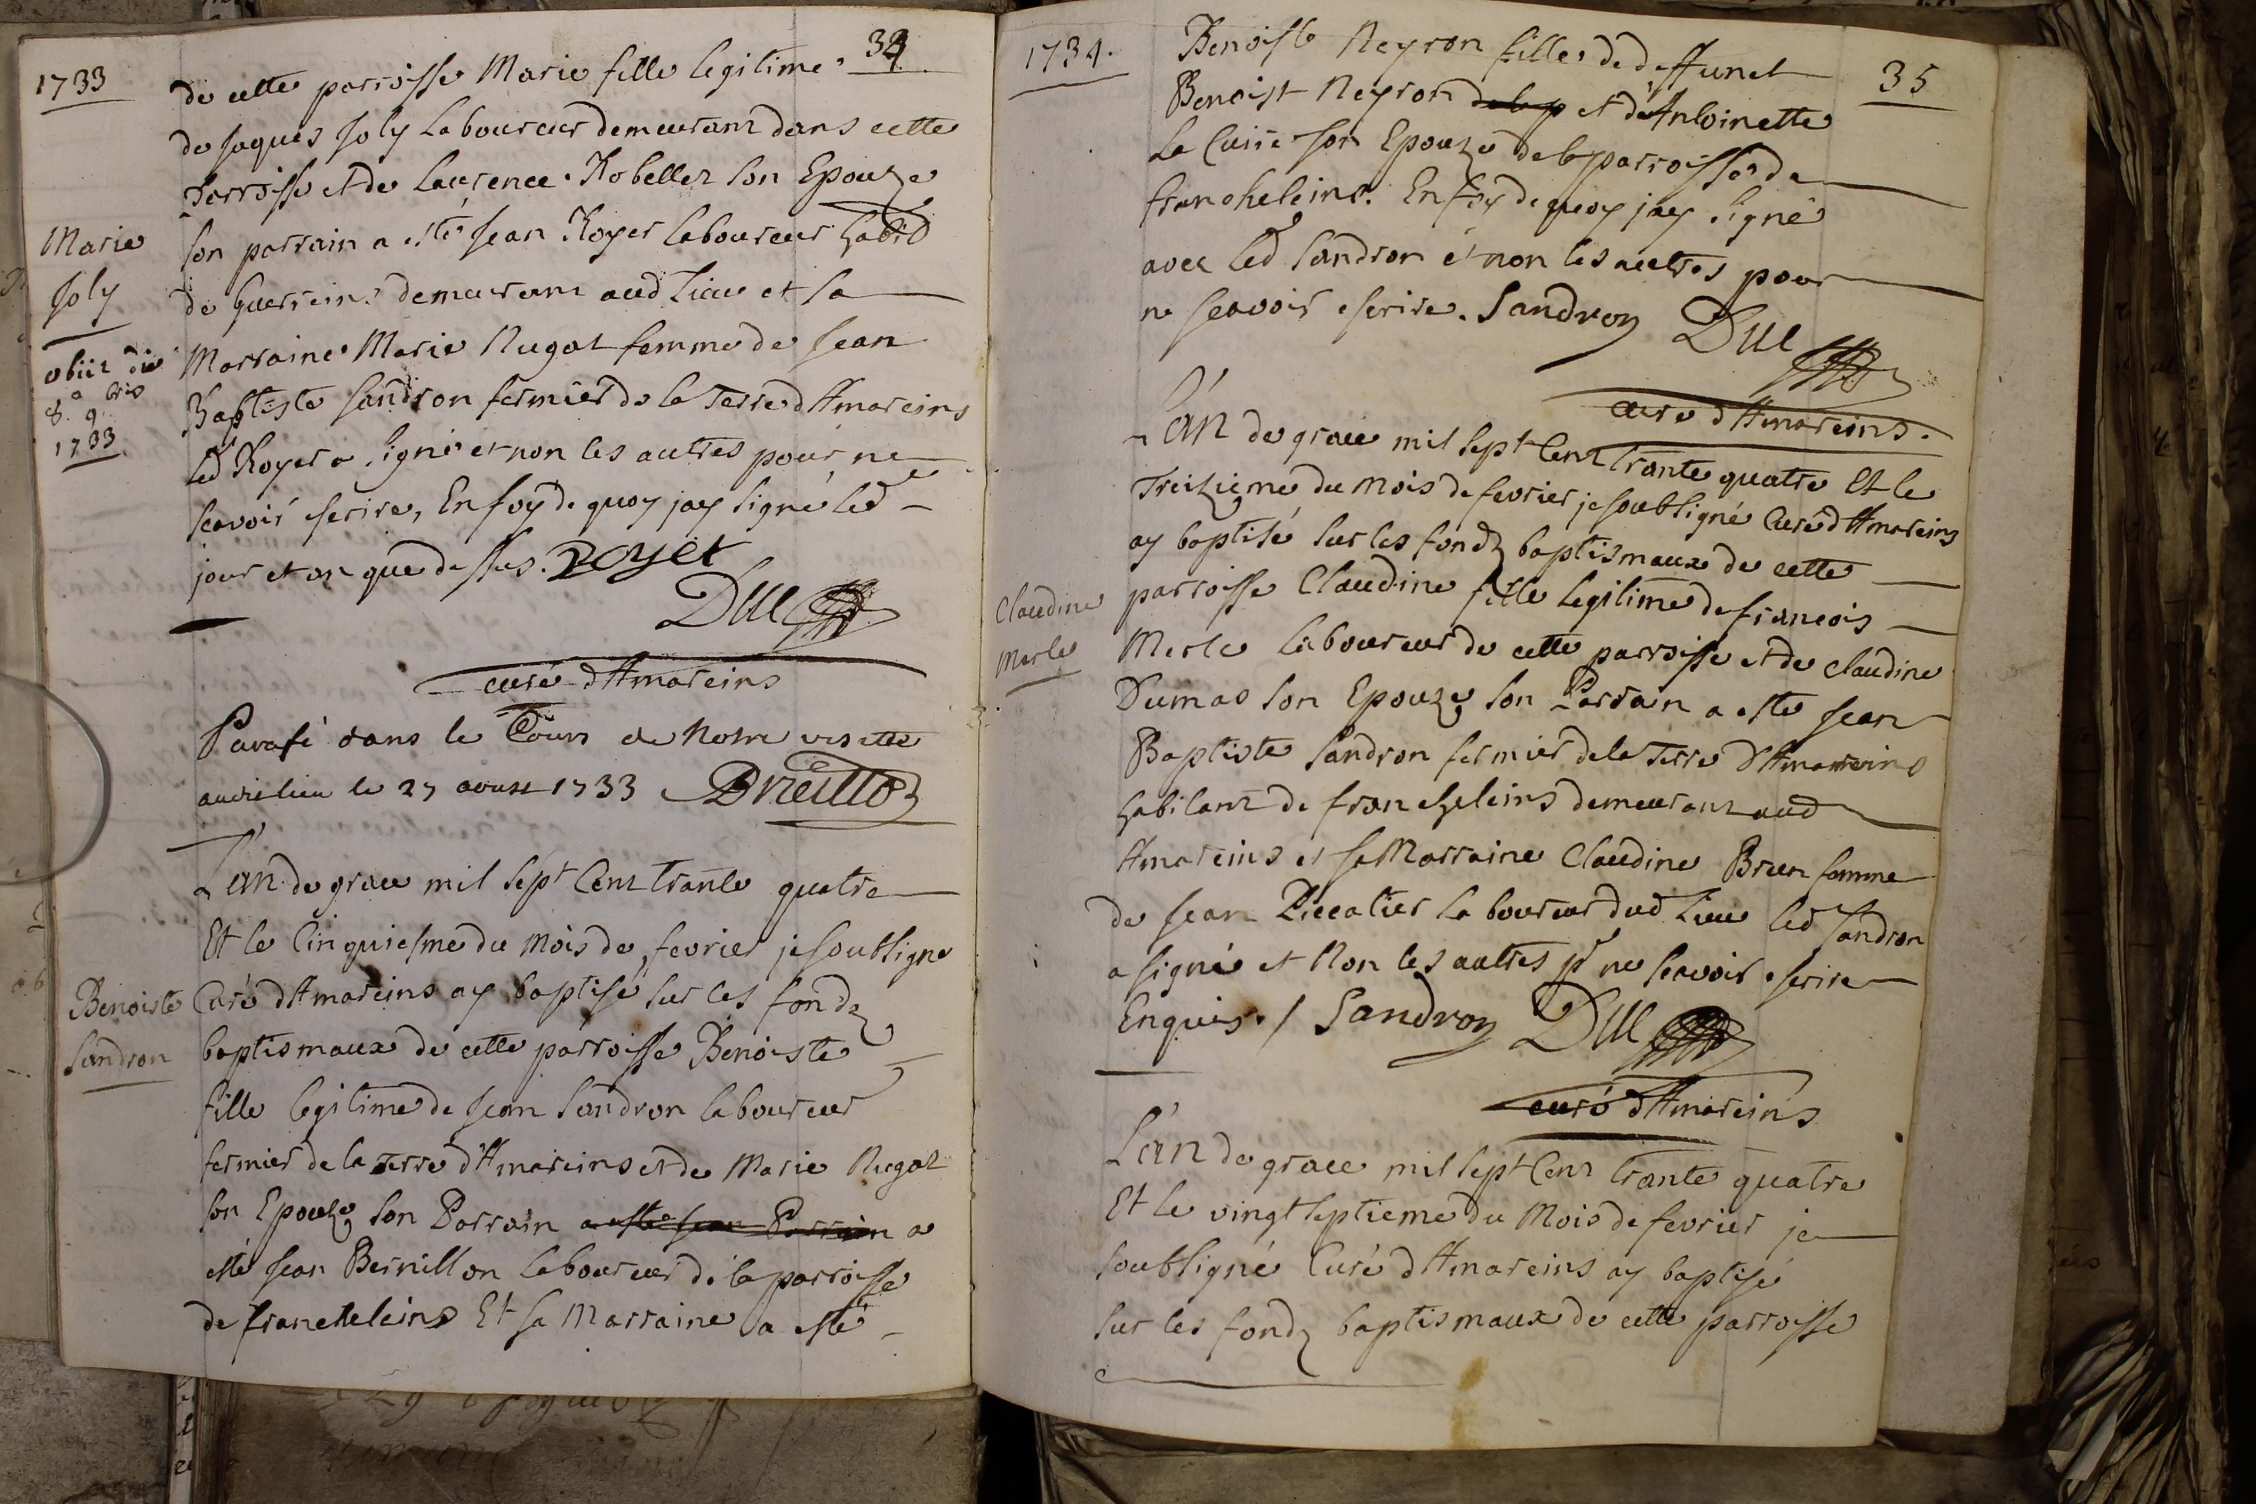 1733
34
de cette parroisse Marie fille legitime
de Jaques Joly Laboureur demeurant dans cette
Parroisse et de Laurence Robellet son Epouze
Marie
Joly
son parrain a esté Jean Royer laboureur habt
de Guerreins demeurant aud Lieu et sa
obiit die
8a 9bris
1733
Marraine Marie Nugat femme de Jean
Baptiste Sandron fermier de la Terre d'Amareins
led Royer a signé et non les autres pour ne
scavoir escrire, En foy de quoy jay signé led
jour et an que dessus. Royer
Duc
curé d'Amareins
Parafé dans le Cours de Notre visitte
audit lieu le 27 aoust 1733
L'an de grace mil sept Cent trante quatre
Et le Cinquiesme du Mois de fevrier je soubsigné
Benoiste
Sandron
Curé d'Amareins ay baptisé sur les fondz
baptismaux de cette parroisse Benoiste
fille legitime de Jean Sandron laboureur
fermier de la Terre d'Amareins et de Marie Nugat
son Epouze son Parrain a esté Jean Parrain a
esté Jean Bernillon laboureur de la parroisse
de francheleins Et sa Marraine a esté
1734.
35
Benoiste Neyron fille de deffunct
Benoist Neyron de la p et d'Antoinette
La Cuire son Epouze de la parroisse de
francheleins. En foy de quoy jay signé
avec led Sandron et non les autres pour
ne scavoir escrire. Sandron Duc
curé d'Amareins.
L'an de grace mil sept Cent trante quatre Et le
Treizieme du Mois de fevrier je soubsigné Curé d'Amareins
ay baptisé sur les fondz baptismaux de cette
Claudine
Merle
parroisse Claudine fille legitime de francois
Merle laboureur de cette parroisse et de Claudine
Dumas son Epouze son Parrain a esté Jean
Baptiste Sandron fermier de la Terre d'Amareins
habitant de francheleins demeurant aud
Amareins et sa Marraine Claudine Brun femme
de Jean Piccatier laboureur dud Lieu led Sandron
a signé et Non les autres pr ne scavoir escrire
Enquis. / Sandron Duc
curé d'Amareins
L'an de grace mil sept Cent trante quatre
Et le vingt septieme du Mois de fevrier je
soubsigné Curé d'Amareins ay baptisé
sur les fondz baptismaux de cette parroisse